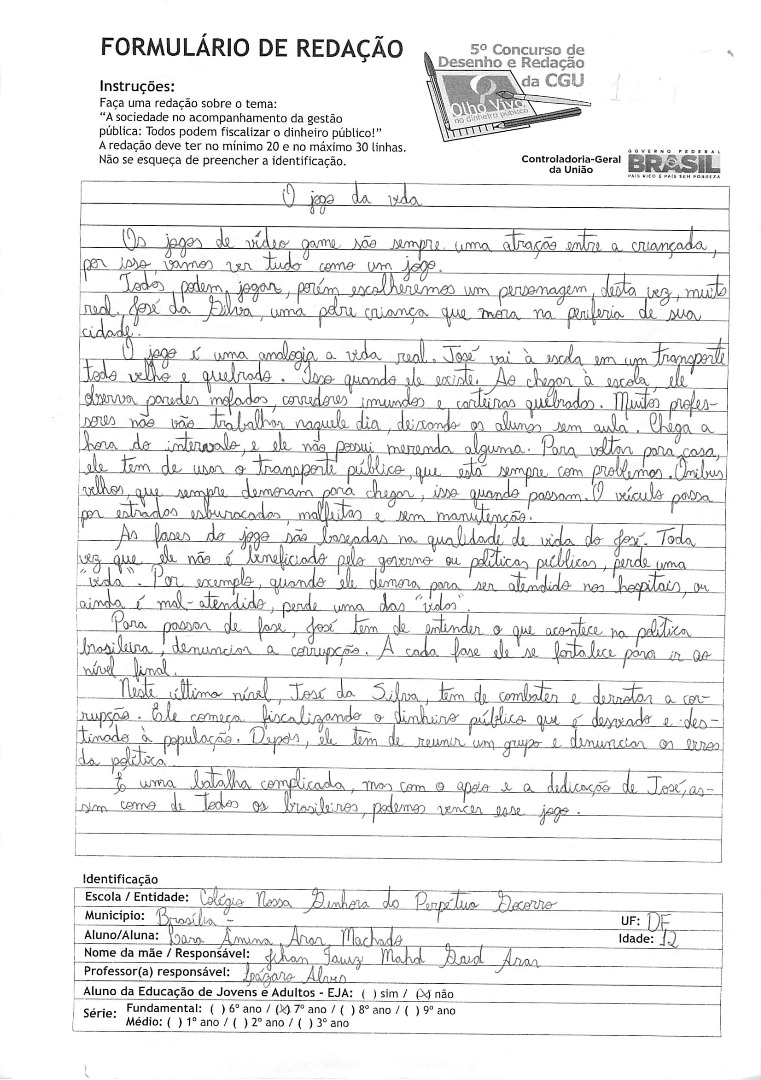 FORMULÁRIO DE REDAÇÃO
5º Concurso de
Desenho e Redação
da CGU
Olho Vivo
no dinheiro público
Instruções:
Faça uma redação sobre o tema:
"A sociedade no acompanhamento da gestão
pública: Todos podem fiscalizar o dinheiro público!"
A redação deve ter no mínimo 20 e no máximo 30 linhas.
Não se esqueça de preencher a identificação.
Controladoria-Geral
da União
GOVERNO FEDERAL
BRASIL
PAÍS RICO É PAÍS SEM POBREZA
O jogo da vida
Os jogos de vídeo game são sempre uma atração entre a criançada,
por isso, vamos ver tudo como um jogo.
Todos podem jogar, porém escolheremos um personagem, desta vez, muito
real. José da Silva, uma pobre criança que mora na periferia de sua
cidade.
O jogo é uma analogia a vida real. José vai à escola em um transporte
todo velho e quebrado. Isso quando ele existe. Ao chegar à escola, ele
observa paredes mofadas, corredores imundos e carteiras quebradas. Muitos profes-
sores não vão trabalhar naquele dia, deixando os alunos sem aula. Chega a
hora do intervalo, e ele não possui merenda alguma. Para voltar para casa,
ele tem de usar o transporte público, que está sempre com problemas. Ônibus
velhos, que sempre demoram para chegar, isso quando passam. O veículo passa
por estradas esburacadas, malfeitas e sem manutenção.
As fases do jogo são baseadas na qualidade de vida do José. Toda
vez que ele não é beneficiado pelo governo ou políticas públicas, perde uma
"vida". Por exemplo, quando ele demora para ser atendido nos hospitais, ou
ainda é mal-atendido, perde uma das "vidas".
Para passar de fase, José tem de entender o que acontece na política
brasileira, denunciar a corrupção. A cada fase ele se fortalece para ir ao
nível final.
Neste último nível, José da Silva, tem de combater e derrotar a cor-
rupção. Ele começa fiscalizando o dinheiro público que é desviado e des-
tinado à população. Depois, ele tem de reunir um grupo e denunciar os erros
da política.
É uma batalha complicada, mas com o apoio e a dedicação de José, as-
sim como de todos os brasileiros, podemos vencer esse jogo.
Identificação
Escola / Entidade: Colégio Nossa Senhora do Perpétuo Socorro
Município: Brasília -
UF: DF
Aluno/Aluna: Lara Âmina Arar Machado
Idade: 12
Nome da mãe / Responsável: Jihan Fauz Mahd Said Arar
Professor(a) responsável: Lázaro Alves
Aluno da Educação de Jovens e Adultos - EJA: ( ) sim / (X) não
Série: Fundamental: ( ) 6º ano / (X) 7º ano / ( ) 8º ano / ( ) 9º ano
Médio: ( ) 1º ano / ( ) 2º ano / ( ) 3º ano